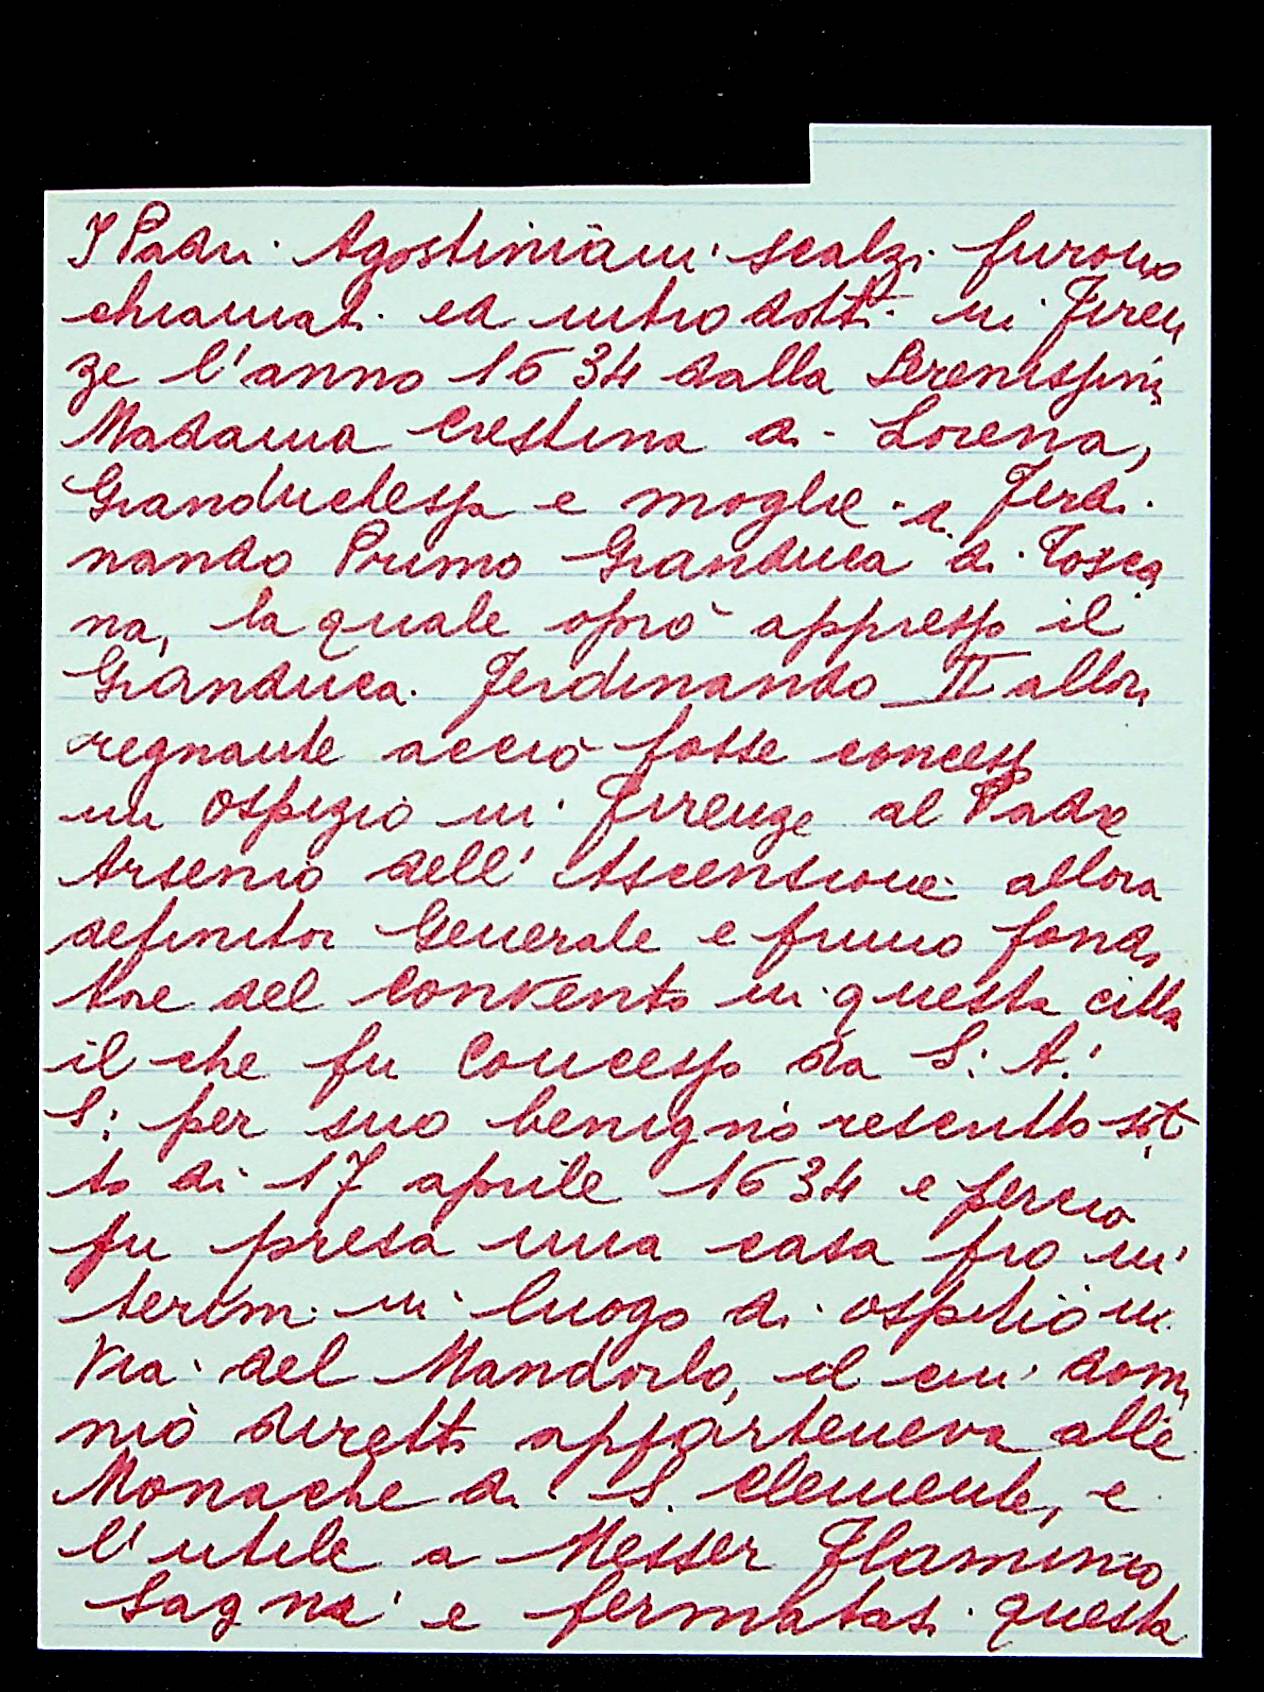 I Padri Agostiniani scalzi furono
chiamati ed introdotti in Firen
ze l'anno 1634 dalla Serenissima
Madama Crestina di Lorena,
Granduchessa e moglie di Ferdi
nando Primo Granduca di Tosca
na, la quale oprò appresso il
Granduca Ferdinando II allora
regnante acciò fosse concess
un ospizio in Firenze al Padre
Arsenio dell'Ascensione allora
definitor Generale e primo fonda
tore del Convento in questa città
il che fu Concesso da S. A.
S. per suo benigno rescritto sot
to di 17 aprile 1634 e perciò
fu presa una casa pro in
terim in luogo di ospitio in
Via del Mandorlo, il cui domi
nio diretto apparteneva alle
Monache di S. Clemente, e
l'utile a Messer Flaminio
e fermatasi questa